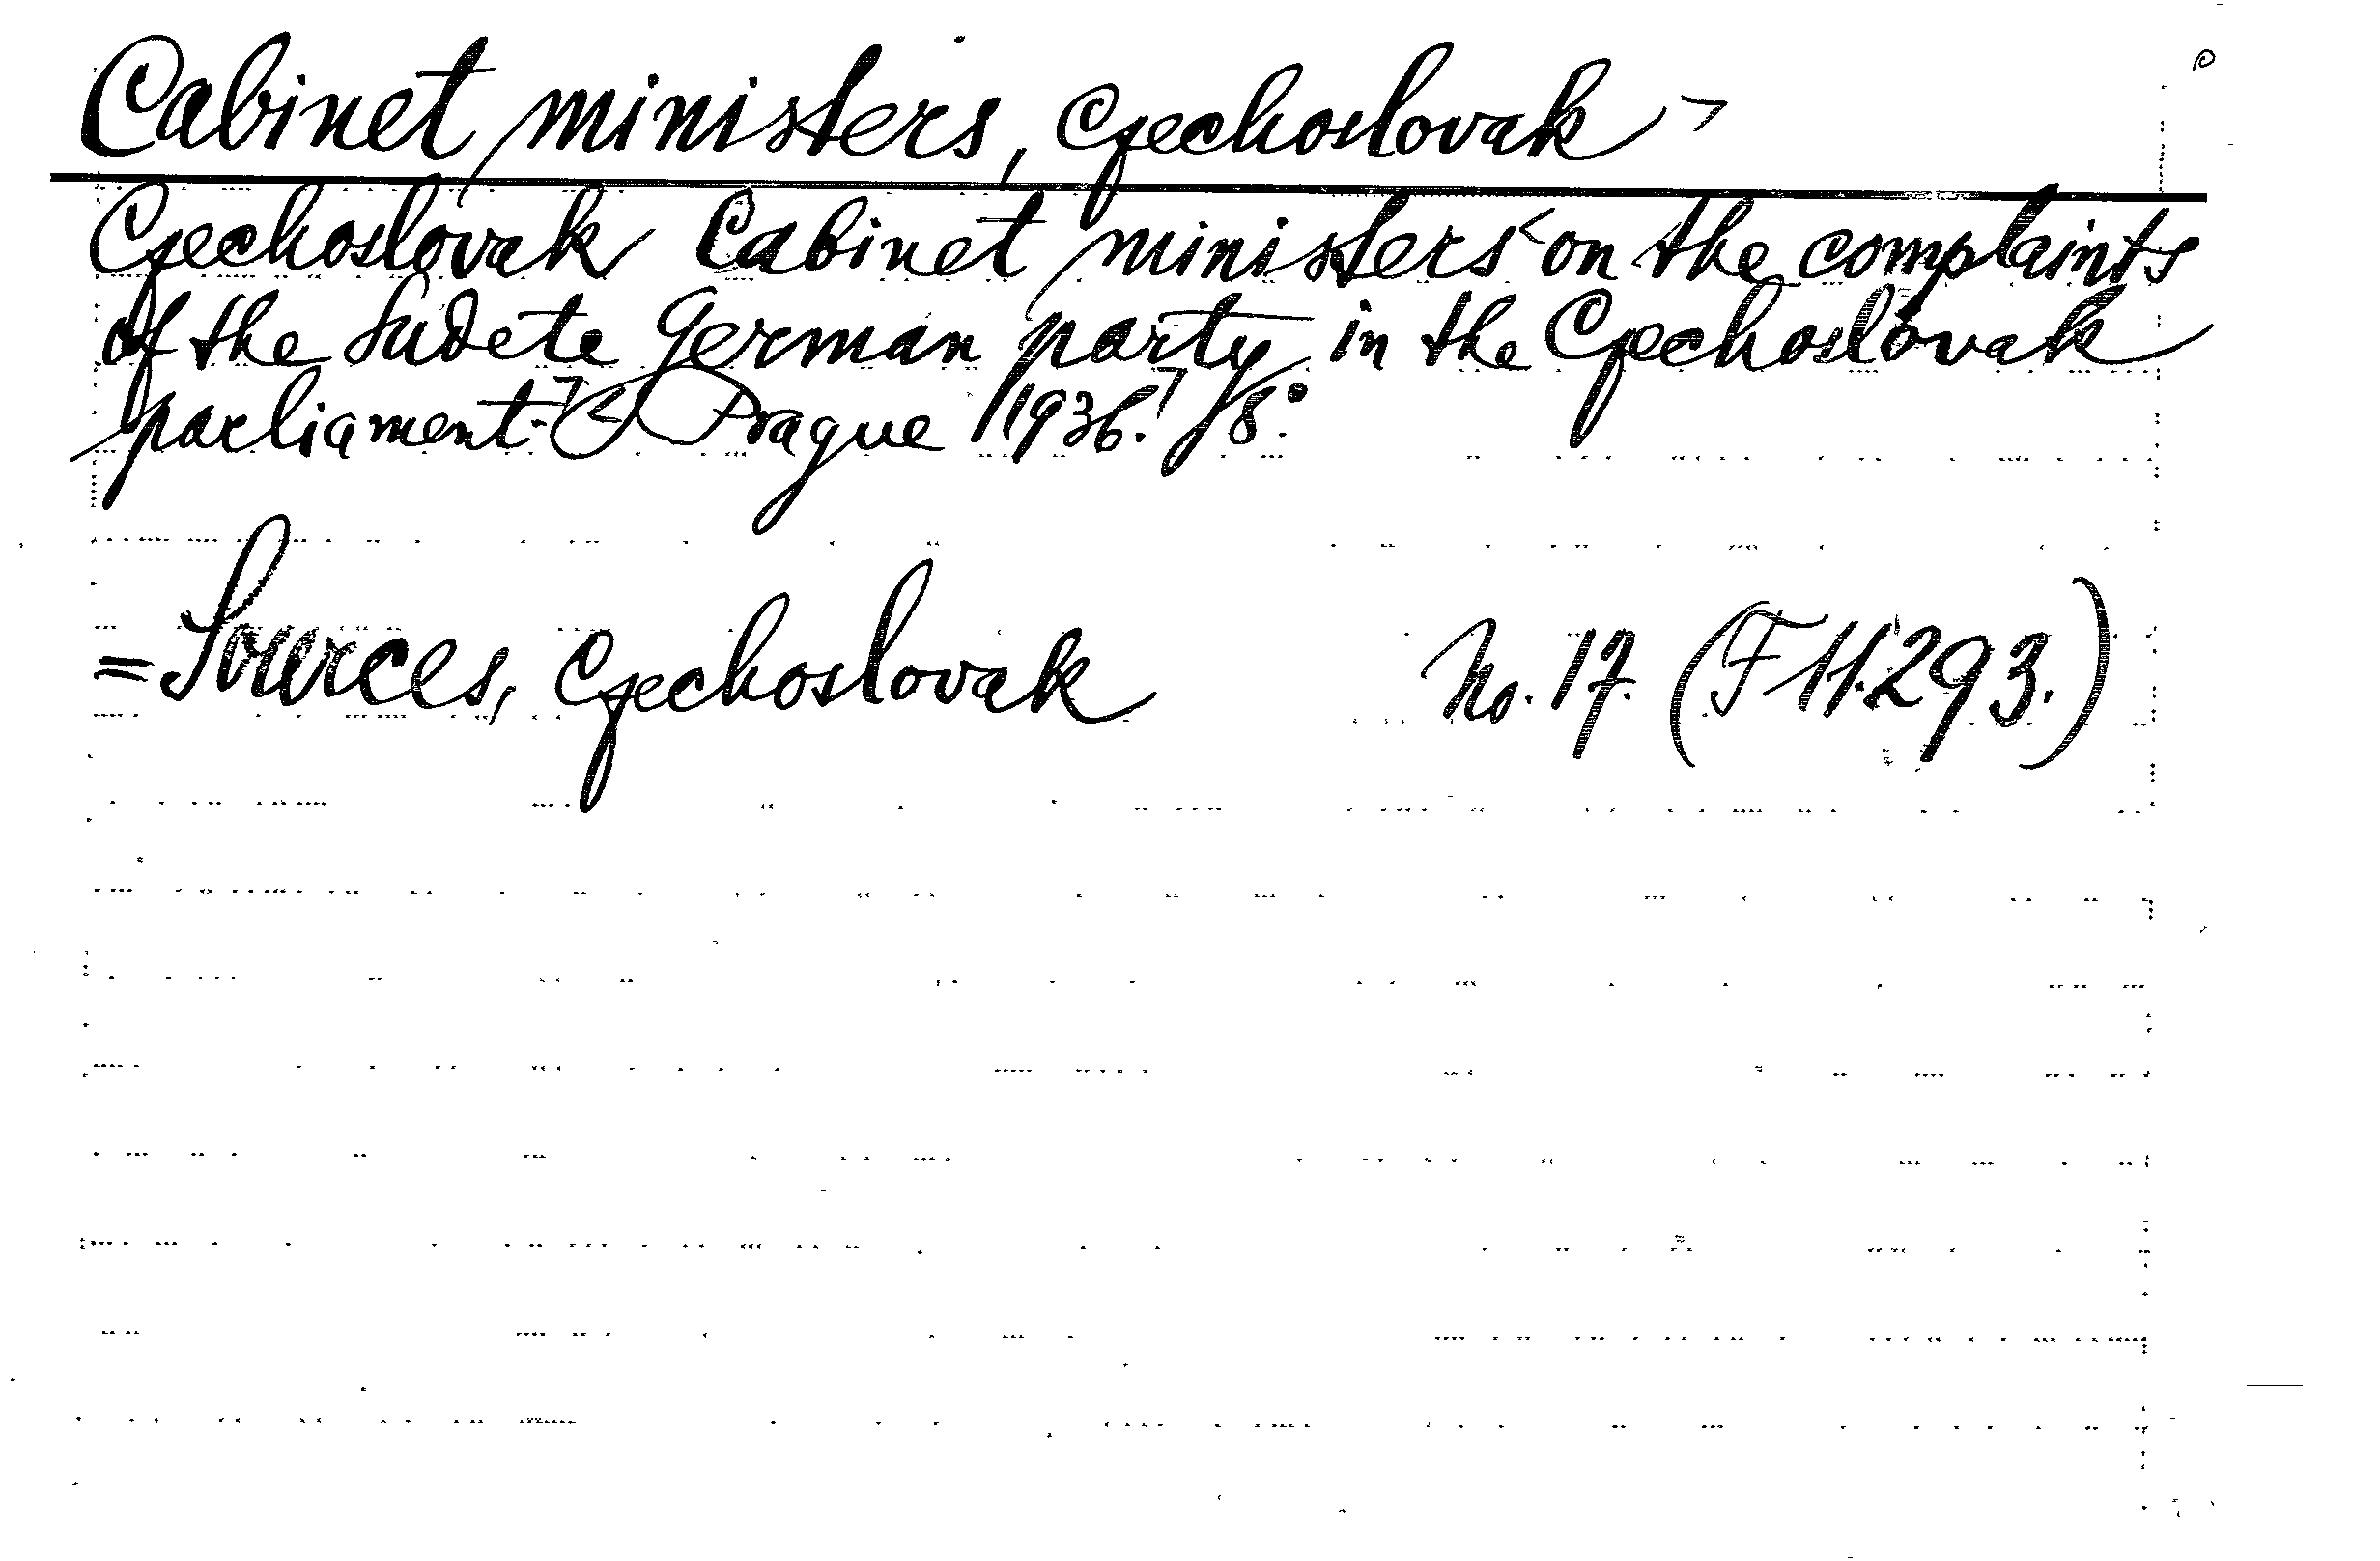 Cabinet ministers, Czechoslovak
Czechoslovak Cabinet ministers on the complaints
of the Sudete German party in the Czechoslovak
parliament. Prague 1936. 8°.
= Sources, Czechoslovak No. 17. (F 11.293.)